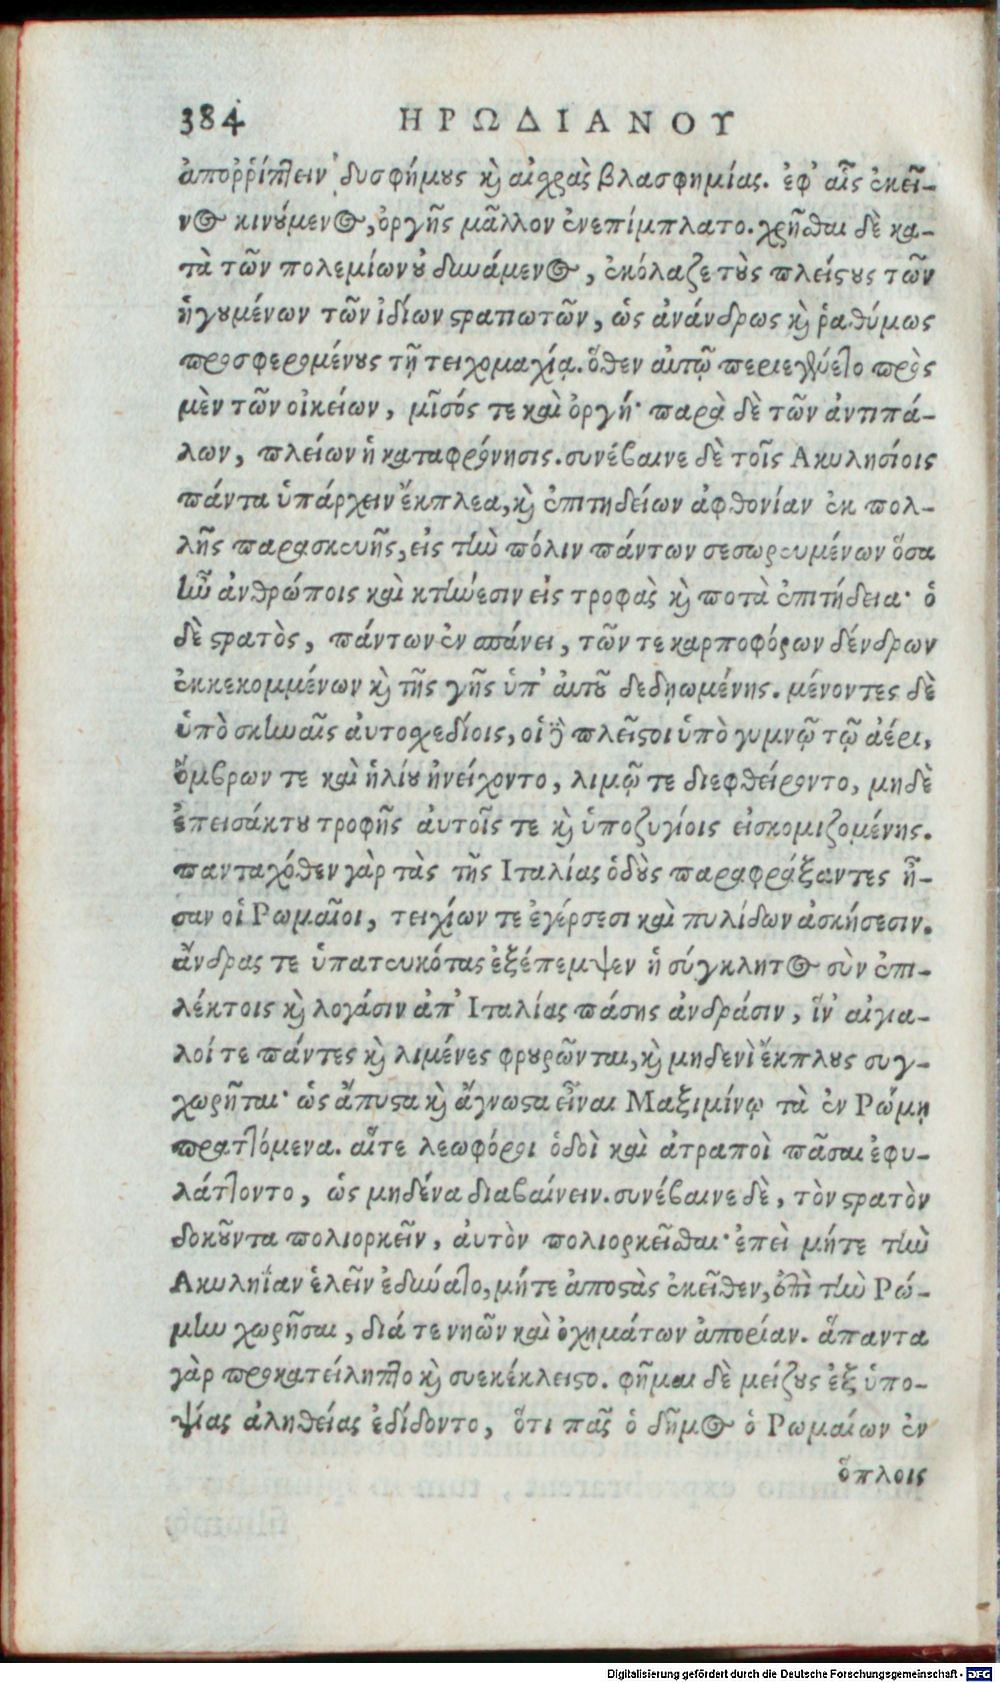 384 ΗΡΩΔΙΑΝΟΥ
ἀποῤῥίπτειν δυσφήμους καὶ αἰσχρὰς βλασφημίας. ἐφ' αἷς ἐκεῖ-
νος κινούμενος, ὀργῆς μᾶλλον ἐνεπίμπλατο. χρῆσθαι δὲ κα-
τὰ τῶν πολεμίων οὐ δυνάμενος, ἐκόλαζε τοὺς πλείστους τῶν
ἡγουμένων τῶν ἰδίων στρατιωτῶν, ὡς ἀνάνδρως καὶ ῥαθύμως
προσφερομένους τῇ τειχομαχίᾳ. ὅθεν αὐτῷ περιεγένετο πρὸς
μὲν τῶν οἰκείων, μῖσός τε καὶ ὀργή· παρὰ δὲ τῶν ἀντιπά-
λων, πλείων ἡ καταφρόνησις. συνέβαινε δὲ τοῖς Ἀκυλησίοις
πάντα ὑπάρχειν ἔκπλεα, καὶ ἐπιτηδείων ἀφθονίαν ἐκ πολ-
λῆς παρασκευῆς, εἰς τὴν πόλιν πάντων σεσωρευμένων ὅσα
ἦν ἀνθρώποις καὶ κτήνεσιν εἰς τροφὰς καὶ ποτὰ ἐπιτήδεια· ὁ
δὲ στρατὸς, πάντων ἐν σπάνει, τῶν τε καρποφόρων δένδρων
ἐκκεκομμένων καὶ τῆς γῆς ὑπ' αὐτοῦ δεδῃωμένης. μένοντες δὲ
ὑπὸ σκηναῖς αὐτοσχεδίοις, οἱ δὲ πλεῖστοι ὑπὸ γυμνῷ τῷ ἀέρι,
ὄμβρων τε καὶ ἡλίου ἠνείχοντο, λιμῷ τε διεφθείροντο, μηδὲ
ἐπεισάκτου τροφῆς αὐτοῖς τε καὶ ὑποζυγίοις εἰσκομιζομένης.
πανταχόθεν γὰρ τὰς τῆς Ἰταλίας ὁδοὺς παραφράξαντες ἦ-
σαν οἱ Ρωμαῖοι, τειχίων τε ἐγέρσεσι καὶ πυλίδων ἀσκήσεσιν.
ἄνδρας τε ὑπατευκότας ἐξέπεμψεν ἡ σύγκλητος σὺν ἐπι-
λέκτοις καὶ λογάσιν ἀπ' Ἰταλίας πάσης ἀνδράσιν, ἵν' αἰγια-
λοί τε πάντες καὶ λιμένες φρουρῶνται, καὶ μηδενὶ ἔκπλους συγ-
χωρῆται· ὡς ἄπυστα καὶ ἄγνωστα εἶναι Μαξιμίνῳ τὰ ἐν Ρώμῃ
πραττόμενα. αἵτε λεωφόροι ὁδοὶ καὶ ἀτραποὶ πᾶσαι ἐφυ-
λάττοντο, ὡς μηδένα διαβαίνειν. συνέβαινε δὲ, τὸν στρατὸν
δοκοῦντα πολιορκεῖν, αὐτὸν πολιορκεῖσθαι· ἐπεὶ μήτε τὴν
Ἀκυληΐαν ἑλεῖν ἐδύνατο, μήτε ἀποστὰς ἐκεῖθεν, ἐπὶ τὴν Ρώ-
μην χωρῆσαι, διά τε νηῶν καὶ ὀχημάτων ἀπορίαν. ἅπαντα
γὰρ προκατείληπτο καὶ συεκέκλειστο. φῆμαι δὲ μείζους ἐξ ὑπο-
ψίας ἀληθείας ἐδίδοντο, ὅτι πᾶς ὁ δῆμος ὁ Ρωμαίων ἐν
ὅπλοις
Digitalisierung gefördert durch die Deutsche Forschungsgemeinschaft - DFG